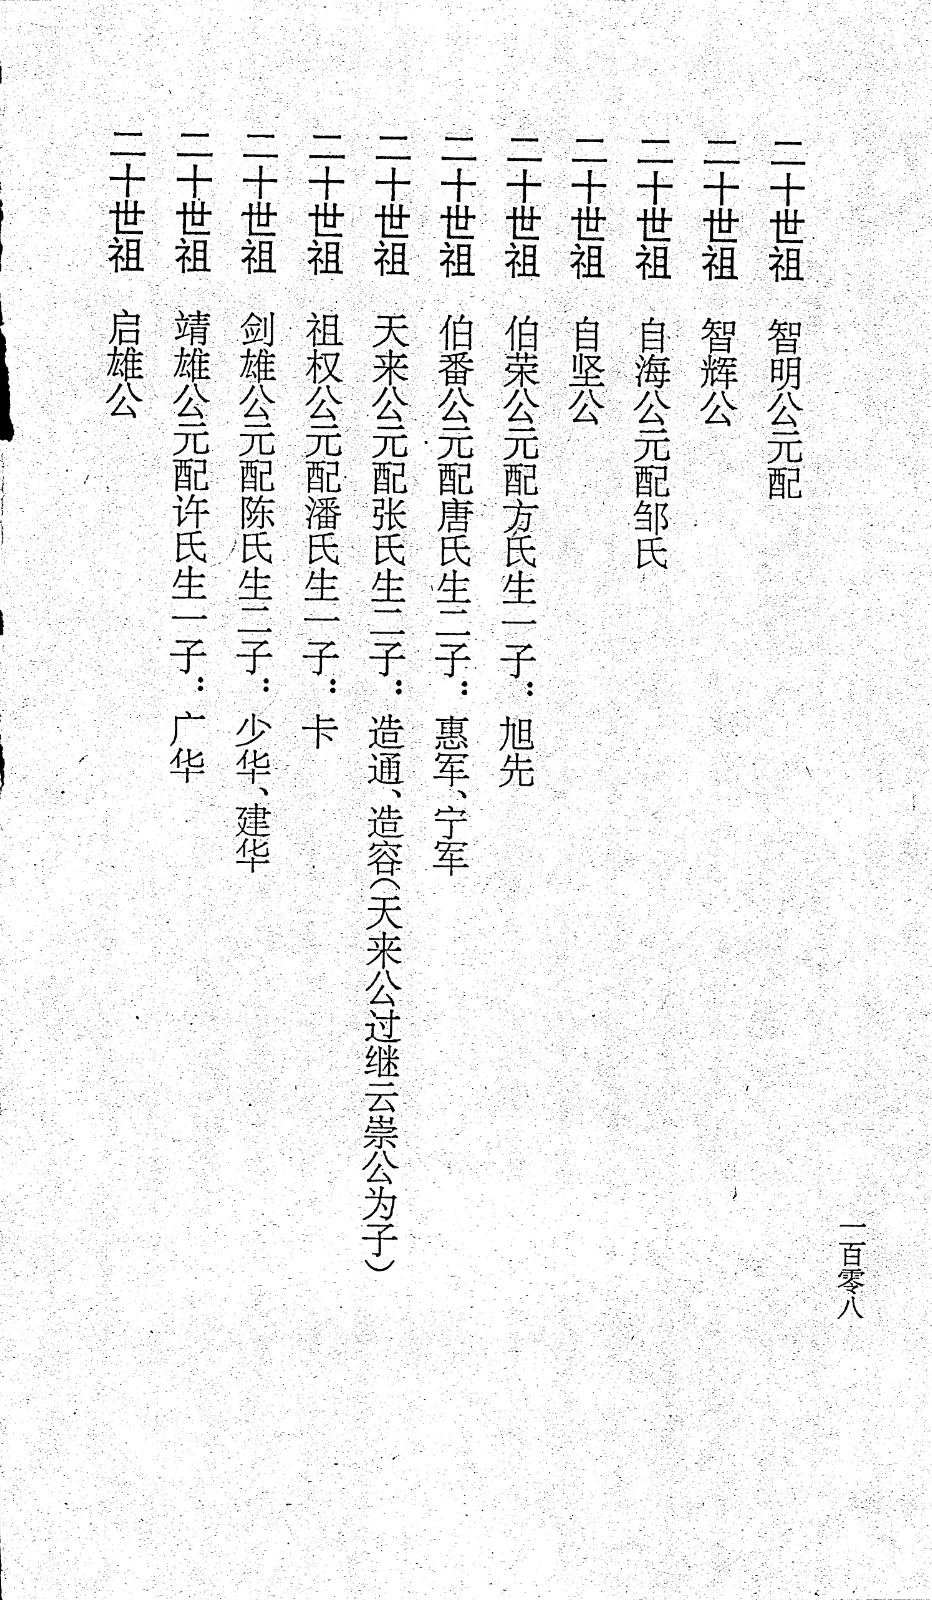 一百零八
二十世祖 智明公元配
二十世祖 智辉公
二十世祖 自海公元配邹氏
二十世祖 自坚公
二十世祖 伯荣公元配方氏生一子：旭先
二十世祖 伯番公元配唐氏生二子：惠军、宁军
二十世祖 天来公元配张氏生二子：造通、造容（天来公过继云崇公为子）
二十世祖 祖权公元配潘氏生一子：卡
二十世祖 剑雄公元配陈氏生二子：少华、建华
二十世祖 靖雄公元配许氏生一子：广华
二十世祖 启雄公